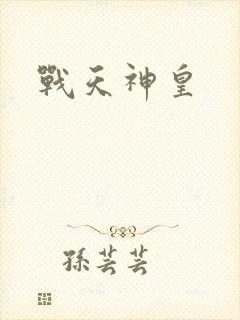 戰天神皇
孫芸芸